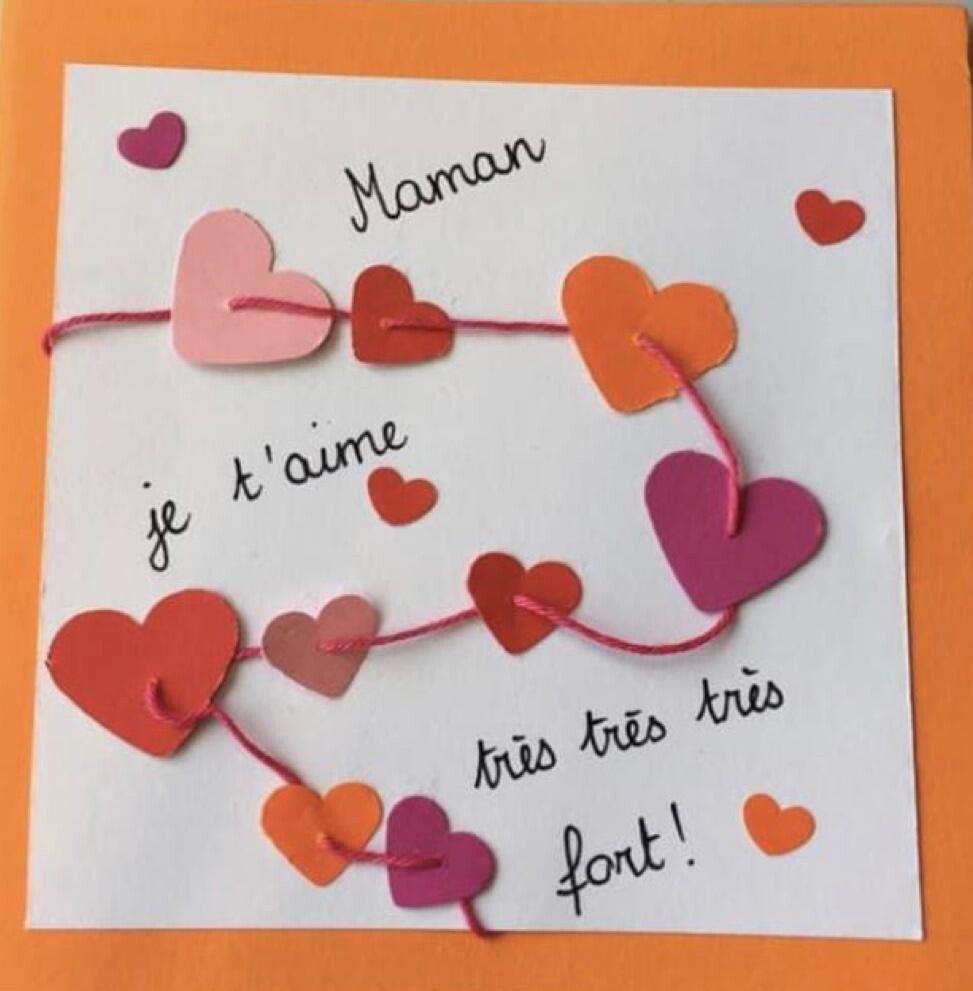 Maman
je t'aime
très très très
fort!